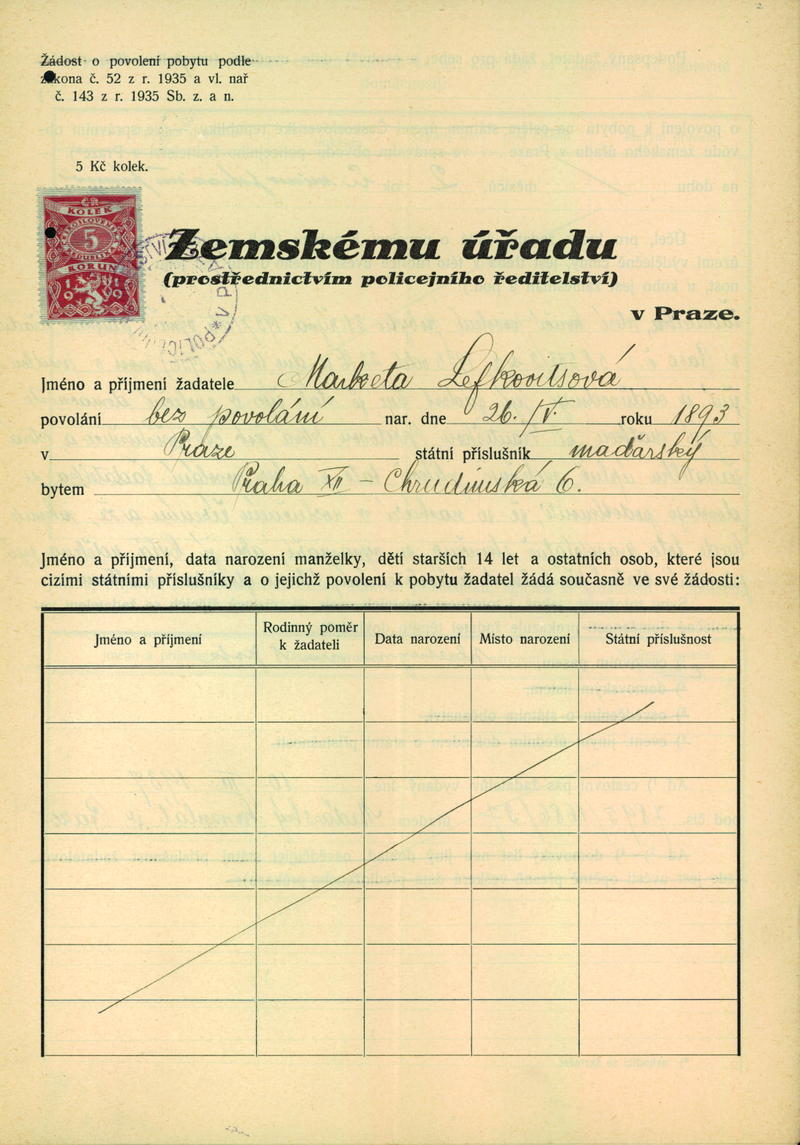 Žádost o povolení pobytu podle
zákona č. 52 z r. 1935 a vl. nař
č. 143 z r. 1935 Sb. z. a n.
5 Kč kolek.
KOLEK
5
KORUN
1919
Zemskému úřadu
(prostřednictvím policejního ředitelství)
v Praze.
Jméno a příjmení žadatele Marketa Lefkovitsová
povolání bez povolání nar. dne 26. IV. roku 1893
v Praze státní příslušník maďarský
bytem Praha XII - Chrudimská 6.
Jméno a příjmení, data narození manželky, dětí starších 14 let a ostatních osob, které jsou
cizími státními příslušníky a o jejichž povolení k pobytu žadatel žádá současně ve své žádosti:
Jméno a příjmení Rodinný poměr k žadateli Data narození Místo narození Státní příslušnost